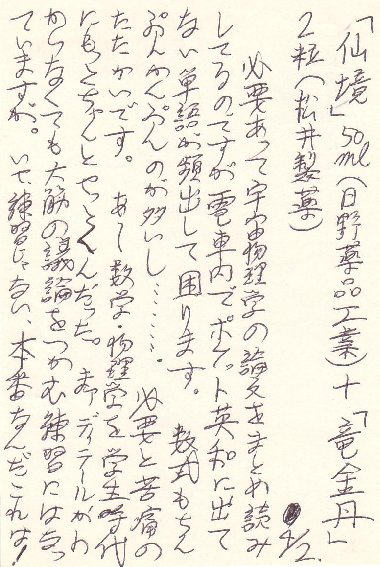 「仙境」50ml（日野薬品工業）＋「竜金丹」
2粒（松井製薬）
4/2.
必要あって宇宙物理学の論文をまとめ読み
してるのですが電車内でポケット英和に出て
ない単語が頻出して困ります。数式もちん
ぷんかんぷんのが多いし……。必要と苦痛の
たたかいです。あー数学・物理学を学生時代
にもっとちゃんとやっとくんだった。まあディテールがわ
からなくても大筋の議論をつかむ練習にはなっ
ていますが。いや、練習じゃない、本番なんだこれは！